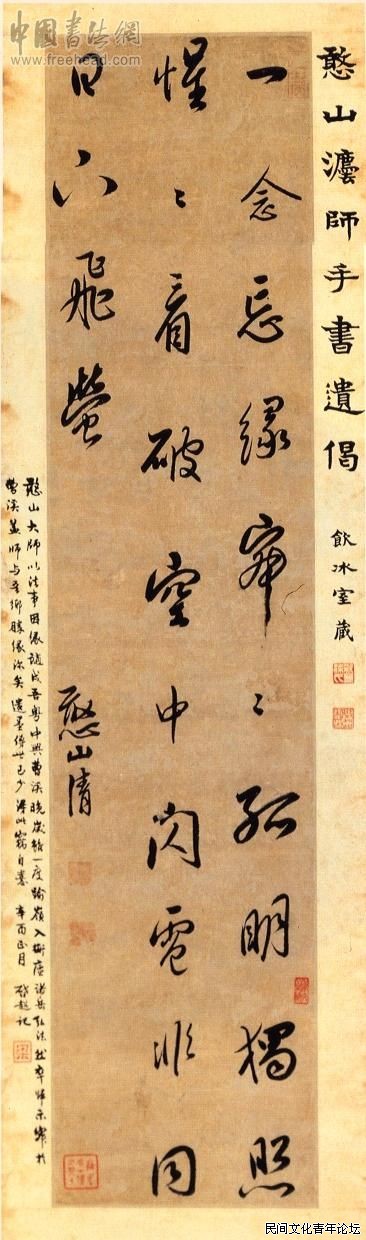 中國書法網
www.freehead.com
憨山灋師手書遺偈
飲冰室藏
一念忘緣寂〻孤明獨照
惺〻看破空中閃電非同
日下飛螢
憨山清
憨山大師以法事因緣謫戍吾粵中興曹溪晚歲雖一度踰嶺入衡廬諸岳弘法然卒歸示寂於
曹溪蓋師与吾鄉勝緣深矣遺墨傳世已少得此竊自喜 辛酉正月 啓超記
民间文化青年论坛